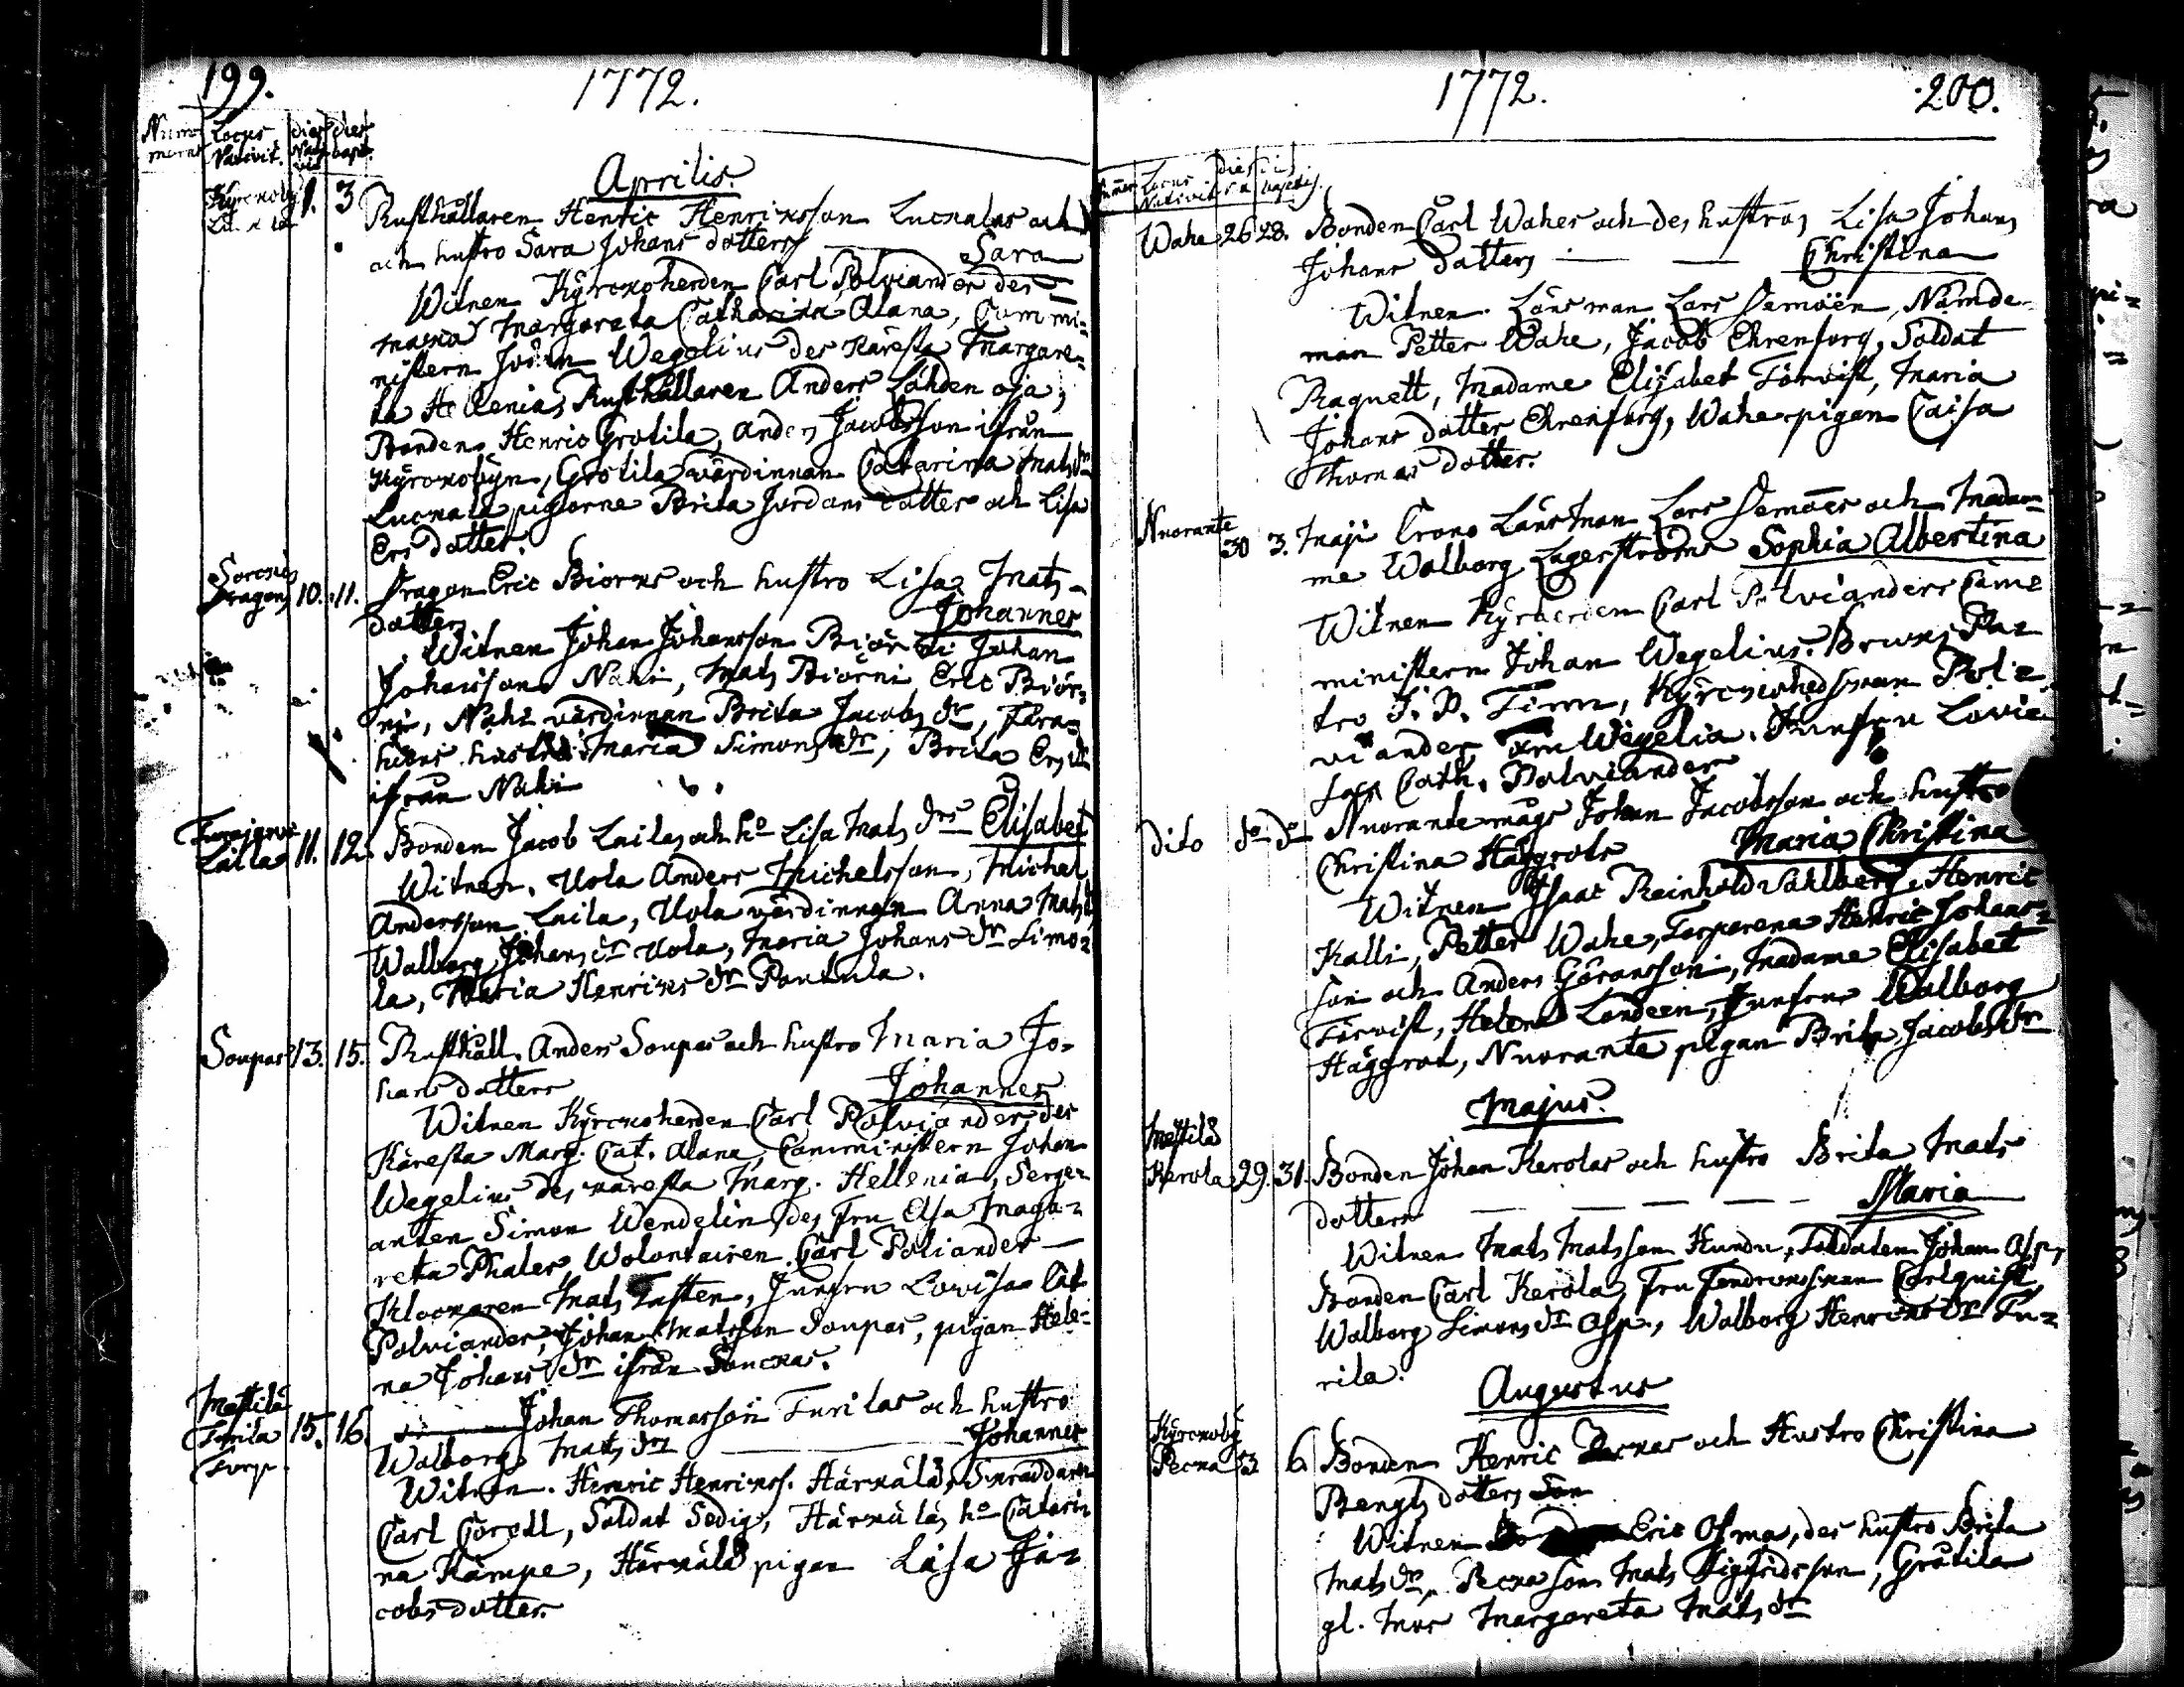 199.
1772.
Locus Nativit.
dies
dies bapt.
Aprilis.
1. 3 Rusthållaren Henric Henricsson och
och hustro Sara Johans dotters — Sara
Witnen Kyrckoherden Carl Polviander des
maka Margareta Catharina Alana, Commi=
nistern Johan Wegelius des käresta Margare=
ta Hellenia, Rusthållaren Anders
Bonden Henric Grotila, Anders Jacobsson ifrån
Kyrckobyn, Grotila wärdinnan Catarina Mats dr
pigorne Brita Jordans dotter och Lisa
Ers dotter.
Dragon 10. 11. Dragon Eric Biorns och hustro Lisa Mats
dotters Johannes
Witnen Johan Johansson Biörni Johan
Johansson Nahi, Mats Biörni Eric Biör=
ni, Nahi värdinnan Brita Jacobs dr,
hustro Maria Simons dr, Brita Ers dr
ifrån Nahi
Laila 11. 12. Bonden Jacob Lailas och ho Lisa Mats drs Elisabet
Witnen. Uola Anders Michelsson, Michel
Andersson Laila, Uola värdinnan Anna Mats dr
Walborg Johans dr Uola, Maria Johans dr Simo=
la, Maria Henrics dr
Soupas 13. 15. Rusthåll. Anders Soupas och hustro Maria Jo=
hans dotters Johannes
Witnen Kyrckoherden Carl Polviander des
Käresta Marg. Cat. Alana, Comministern Johan
Wegelius des käresta Marg. Hellenia, Serge=
anten Simon Wendelin des Fru Elsa Maga=
reta Phaler Wolontairen Carl Poliander
Klockaren Mats Tasten, Junfru Lovisa Cat
Polviander, Johan Matsson Soupas, pigan Hele=
na Johans dr ifrån
Mettilä
Furila
Torp. 15. 16. Johan Thomasson Furilas och hustro
Walborg Mats drs — Johannes
Witnen. Henric Henricss. Härkälä,
Carl Corell, Soldat Sedig, Härkälä, ho Catari=
na Kämpe, Härkälä pigan Lisa Ja=
cobs dotter.
1772.
200.
Locus Nativit
Wahe 26 28. Bonden Carl Wahes och des hustros Lisa Johans
Johans dotters — — Christina
Witnen. Länsman Lars Nämde=
man Petter Wahe, Jacob Ehrenforg, Soldat
Raquett, Madame Elisabet Törvist, Maria
Johans dotter Ehrenforg, Wahe pigan Caisa
Thomas dotter.
Nuorante
30 3. Maji Crono Länsman Lars och Mada=
me Walborg Lagerströms Sophia Albertina
Witnen Kyrherden Carl Polvianders Com=
ministern Johan Wegelius. Bruks Pa=
tro Kyrckiohedsman Pol=
viander Fru Wegelia. Junfru Lovi=
sa Cath. Polviander
Dito do do Nuorante mågs Johan Jacobsson och hustro
Christina Häggrots Maria Christina
Witnen Isaac Reinhold Sahlberg, Henric
Kalli, Petter Wahe, Torparena Henric Johans=
son och Anders Göransson, Madame Elisabet
Törvist, Helena Londeen, Junfru Walborg
Häggrot, Nuorante pigan Brita Jacobs dr
Majus.
Mettilä
Kerola 29. 31. Bonden Johan Kerolas och hustro Brita Mats
dotters — — — Maria
Witnen Mats Matsson Hundu, Soldaten Johan Asp,
Bonden Carl Kerola, Fru Carlquist,
Walborg Simons dr Asp., Walborg Henrics dr Fu=
rila.
Augustus
Kyrckoby
Pecka 3 6 Bonden Henric Peckas och Hustro Christina
Bengts dotters Son
Witnen Eric Osma, des hustro Brita
Mats dr, Pecka son Mats Sigfridsson, Gråtila
gl. Mor Margareta Mats dr